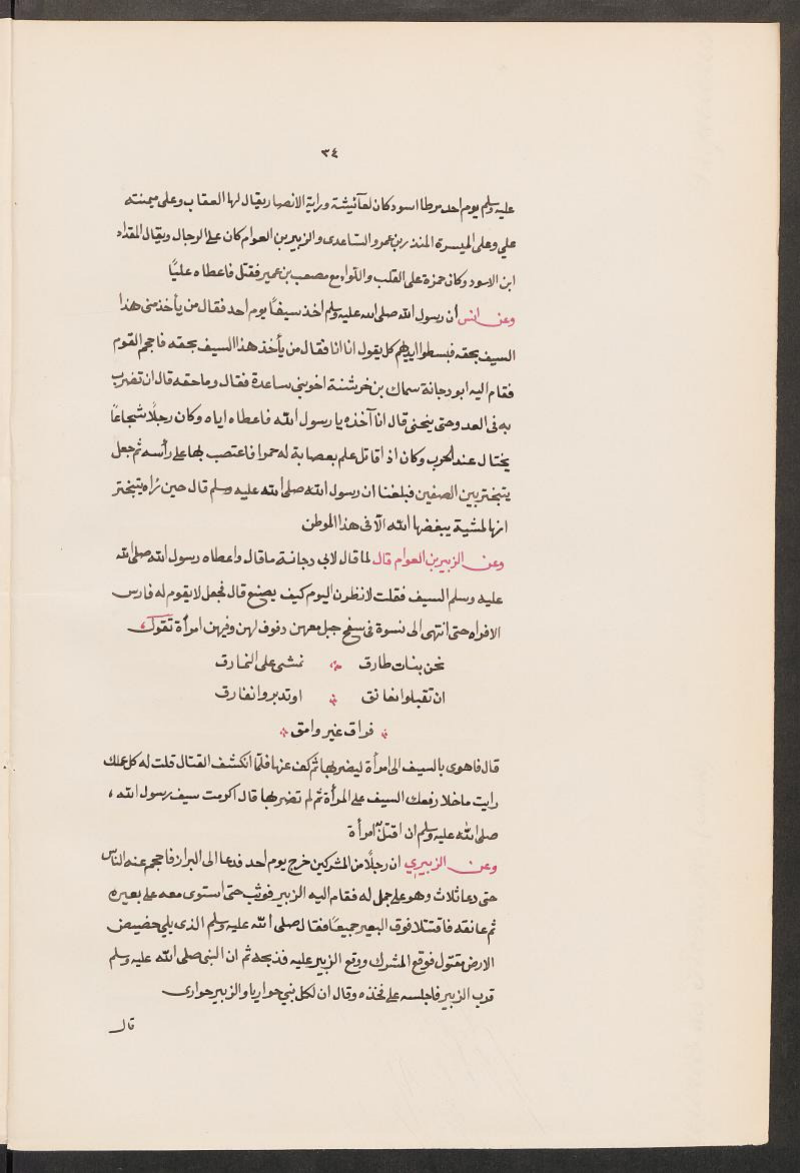 ٣٤
عليه وسلم يوم احد مرطا اسود كان لعآئيشة وراية الانصار يقال لها العقاب وعلى ميمنته
علي وعلى الميسرة المنذر بن عمرو الساعدى والزبير بن العوام كان على الرجال ويقال المقداد
ابن الاسود وكان حمزة على القلب واللواء مع مصعب بن عمير فقتل فاعطاه عليًا
وعن انس أن رسول الله صلى الله عليه وسلم اخذ سيفًا يوم احد فقال من يأخذ منى هذا
السيف بحقه فبسطوا ايديهم كل يقول انا انا فقال من يأخذ هذا السيف بحقه فاحجم القوم
فقام اليه ابو دجانة سماك بن خرشنة اخو بنى ساعدة فقال وما حقه قال ان تضرب
به فى العدو حتى ينحنى قال انا آخذه يا رسول الله فاعطاه اياه وكان رجلًا شجاعًا
يختال عند الحرب وكان اذا قاتل علم بعصابة له حمرا فاعتصب بها على رأسه ثم جعل
يتبختر بين الصفين فبلغنا ان رسول الله صلى الله عليه وسلم قال حين رٔاه يتبختر
انها لمشية يبغضها الله الّا فى هذا الموطن
وعن الزبير بن العوام قال لما قال لابى دجانة ما قال واعطاه رسول الله صلى الله
عليه وسلم السيف فقلت لانظرن اليوم كيف يصنع قال فجعل لا يقوم له فارس
الافراه حتى انتهى الى نسوة فى سفح جبل معهن دفوف لهن وفيهن امرأة تقول
نحن بنات طارق ∴ نمشى على النمارق
ان تقبلوا نعانق ∴ او تدبروا نفارق
∴ فراق غير وامق ∴
قال فاهوى بالسيف الى امرأة ليضربها ثم كف عنها فلمّا انكشف القتال قلت له كل عملك
رايت ما خلا رفعك السيف على المرأة ثم لم تضربها قال اكرمت سيف رسول الله ،
صلى الله عليه وسلم ان اقتل به امرأة
وعن الزبيري ان رجلًا من المشركين خرج يوم احد فدعا الى البراز فاحجم عنه الناس
حتى دعا ثلاث وهو على جمل له فقام اليه الزبير فوثب حتى استوى معه على بعيره
ثم عانقه فاقتتلا فوق البعير جميعًا فقال صلى الله عليه وسلم الذى يلي حضيض
الارض مقتول فوقع المشرك ووقع الزبير عليه فذبحه ثم ان النبى صلى الله عليه وسلم
قرب الزبير فاجلسه على فخذه وقال ان لكل نبي حواريا والزبير حوارى
قال